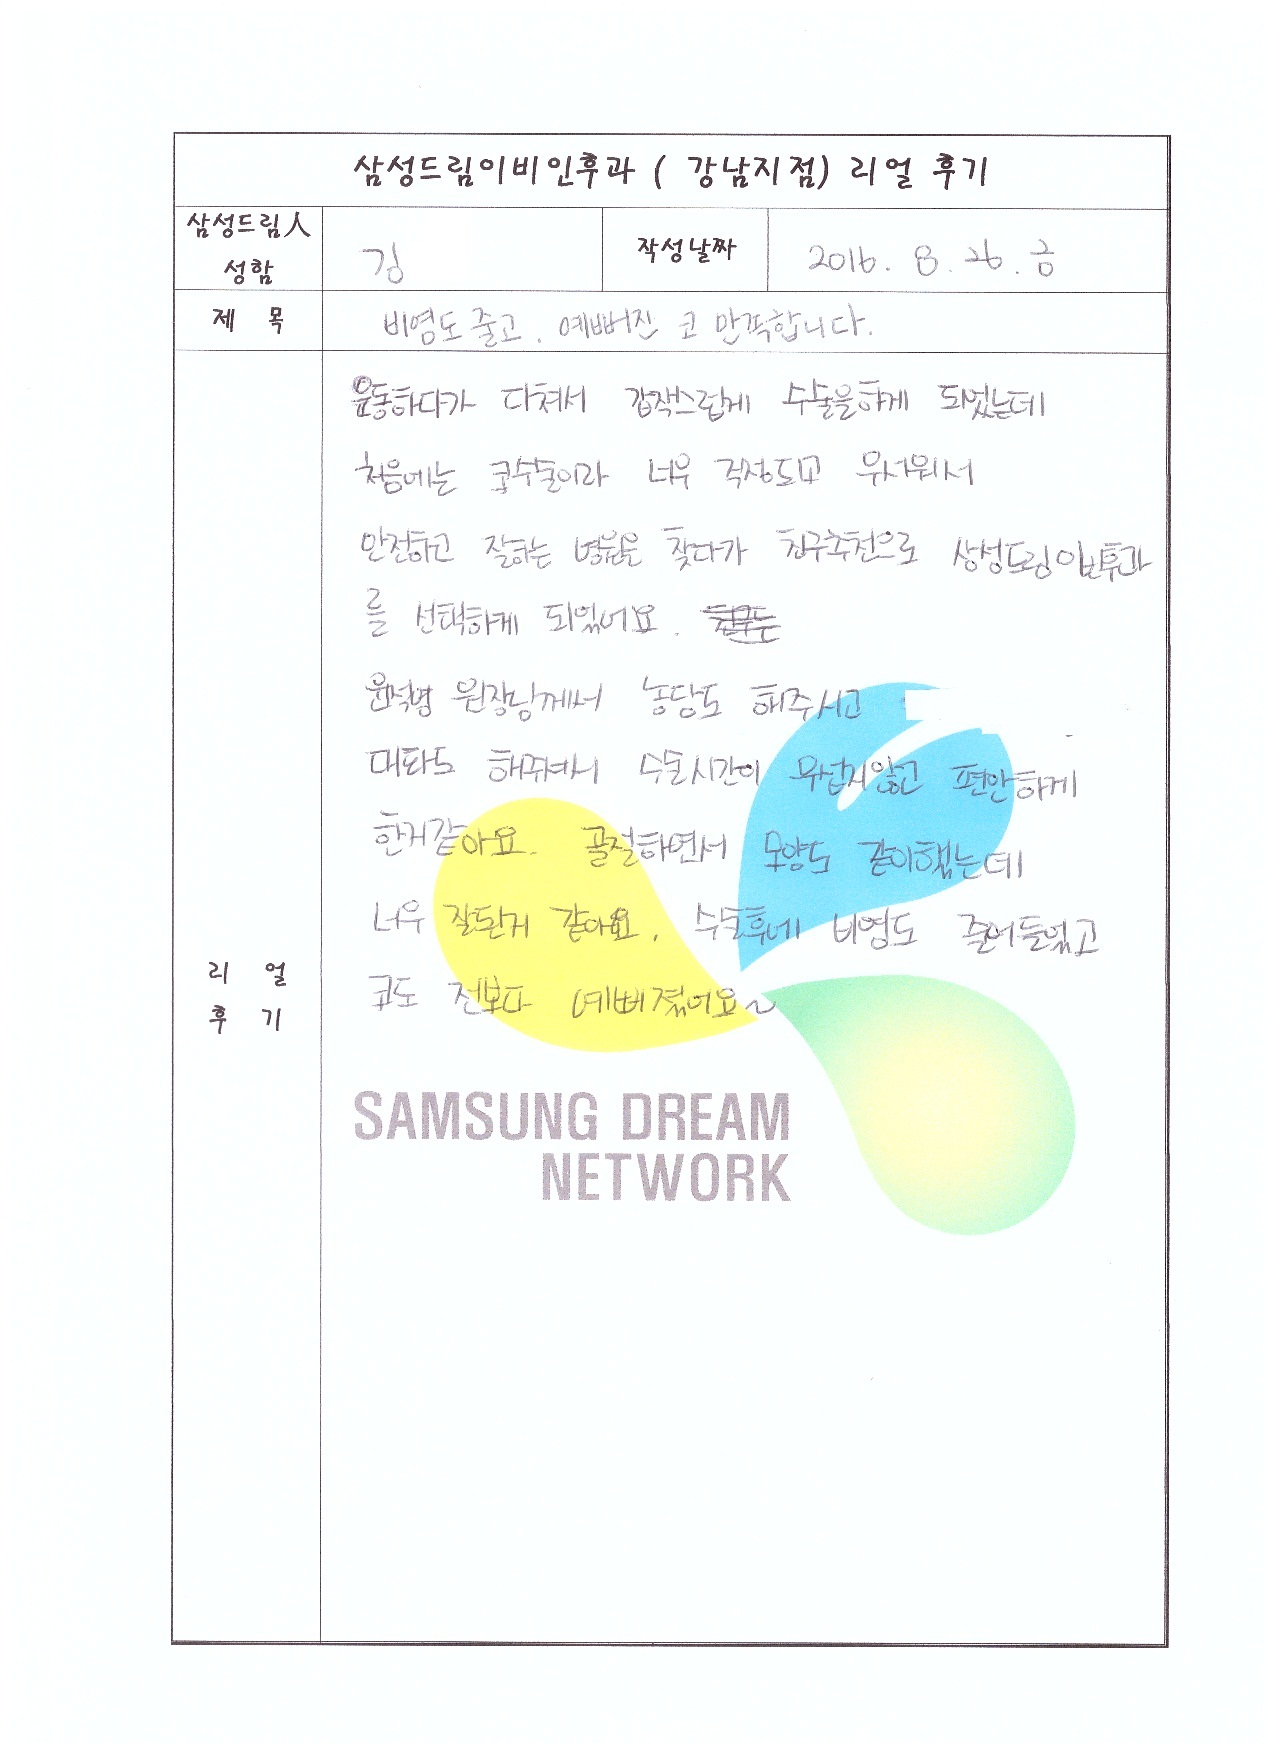 삼성드림이비인후과 ( 강남지점) 리얼 후기
삼성드림人 성함
김
작성날짜
2016. 8. 26. 금
제 목
비염도 줄고, 예뻐진 코 만족합니다.
리 얼 후 기
운동하다가 다쳐서 갑작스럽게 수술을하게 되었는데
처음에는 코수술이라 너무 걱정도되고 무서워서
안전하고 잘하는 병원을 찾다가 친구추천으로 삼성드림이비후과
를 선택하게 되었어요.
원장님께서 농담도 해주시고
대화도 해주셔서 수술시간이 무섭지않고 편안하게
한거같아요. 골절하면서 모양도 같이했는데
너무 잘된거 같아요. 수술후에 비염도 줄어들었고
코도 전보다 예뻐졌어요~
SAMSUNG DREAM
NETWORK